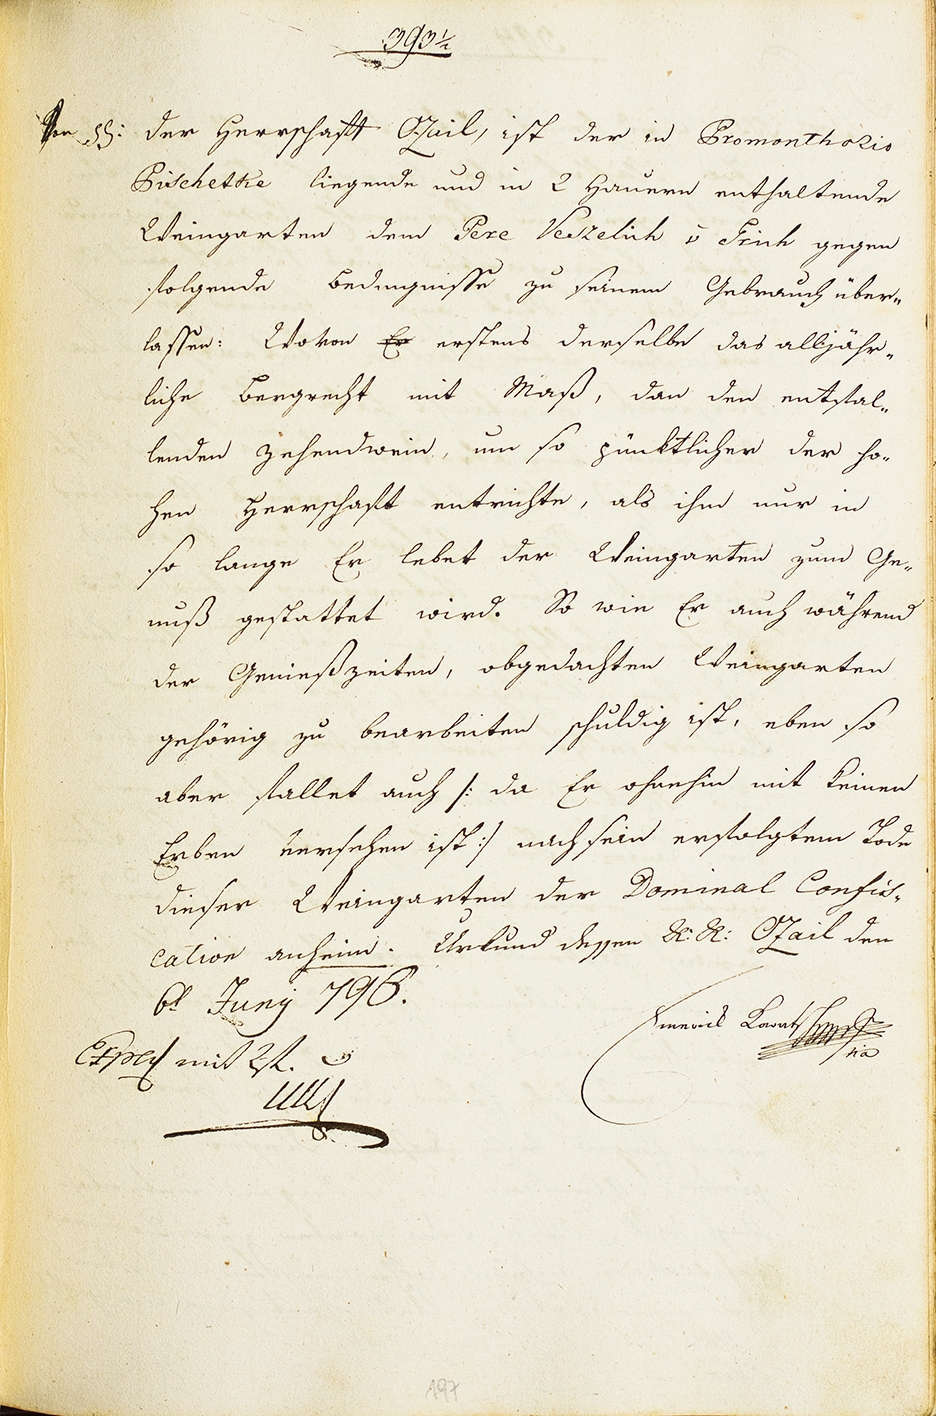 393½
Von der Herrschaft Ozail, ist der in Promonthorio
Pischetke liegende und in 2 Hauern enthaltende
Weingarten dem Pere Veszelich gegen
folgende Bedingnisse zu seinem Gebrauch über„
lassen: Wovon Er erstens derselbe das alljähr„
liche Bergrecht mit Maß, dan den entfal„
lenden Zehendwein, um so pünktlicher der ho„
hen Herrschaft entrichte, als ihm nur in
so lange Er lebet der Weingarten zum Ge„
nuß gestattet wird. So wie Er auch während
der Genießzeiten, obgedachten Weingarten
gehörig zu bearbeiten schuldig ist, eben so
aber fallet auch /: da Er ohnehin mit keinen
Erben versehen ist :/ nach sein erfolgtem Tode
dieser Weingarten der Dominal Confis„
cation anheim. Urkund dessen K: K: Ozail den
6t Juny 796.
Emerich
mit 2f.
197